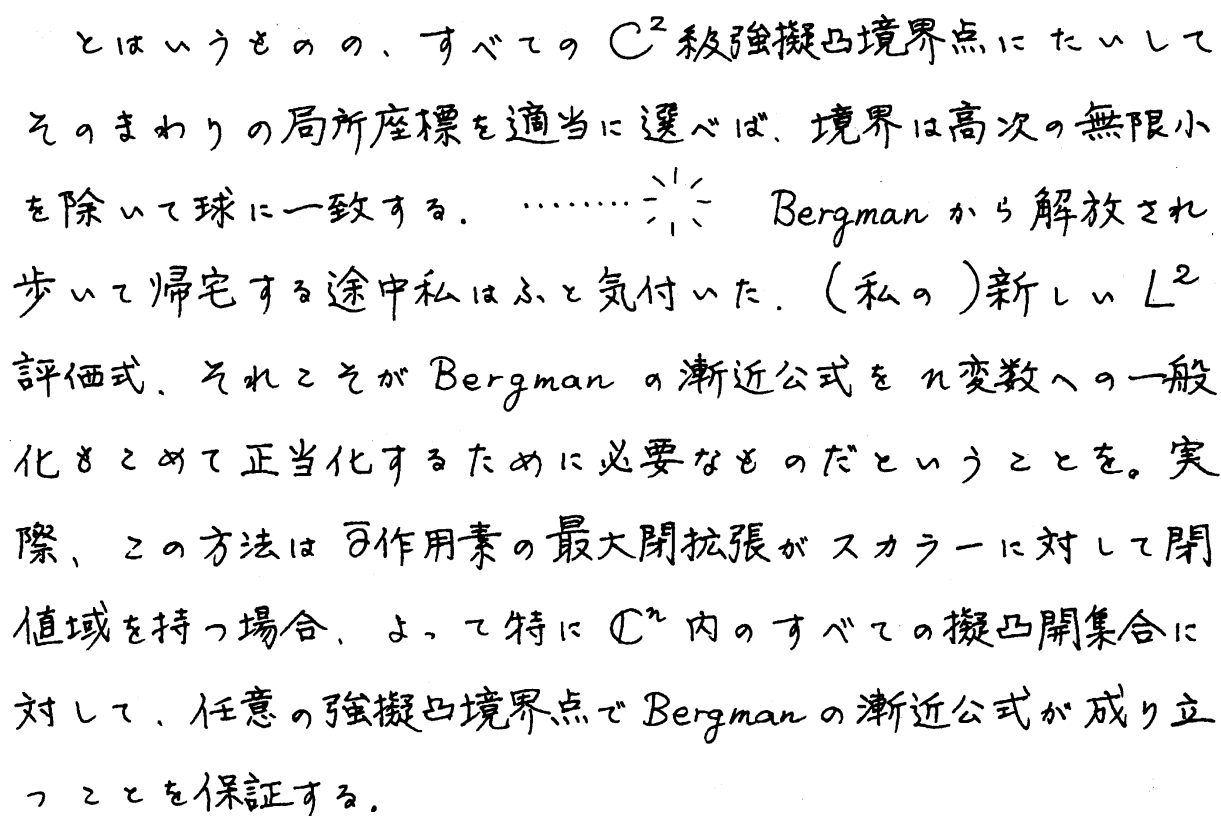 とはいうものの、すべての C²級強擬凸境界点にたいして
そのまわりの局所座標を適当に選べば、境界は高次の無限小
を除いて球に一致する. ‥‥‥‥ Bergman から解放され
歩いて帰宅する途中私はふと気付いた. (私の)新しい L²
評価式、それこそが Bergman の漸近公式を n変数への一般
化もこめて正当化するために必要なものだということを。実
際、この方法は ∂̄作用素の最大閉拡張がスカラーに対して閉
値域を持つ場合、よって特に ℂⁿ 内のすべての擬凸開集合に
対して、任意の強擬凸境界点で Bergman の漸近公式が成り立
つことを保証する.